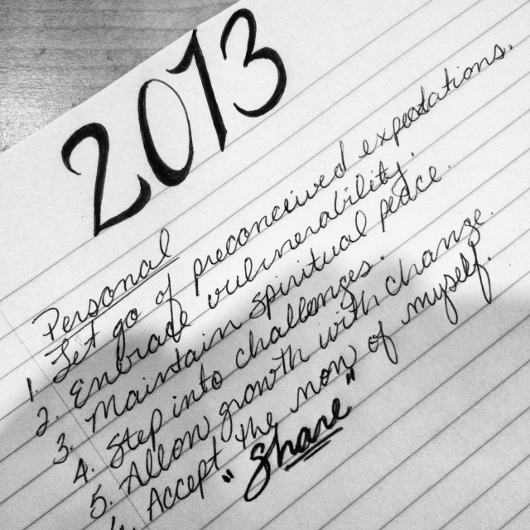 2013
Personal
1. Let go of preconceived expectations.
2. Embrace vulnerability.
3. Maintain spiritual peace.
4. Step into challenges.
5. Allow growth with change.
6. Accept the now of myself.
"Share"